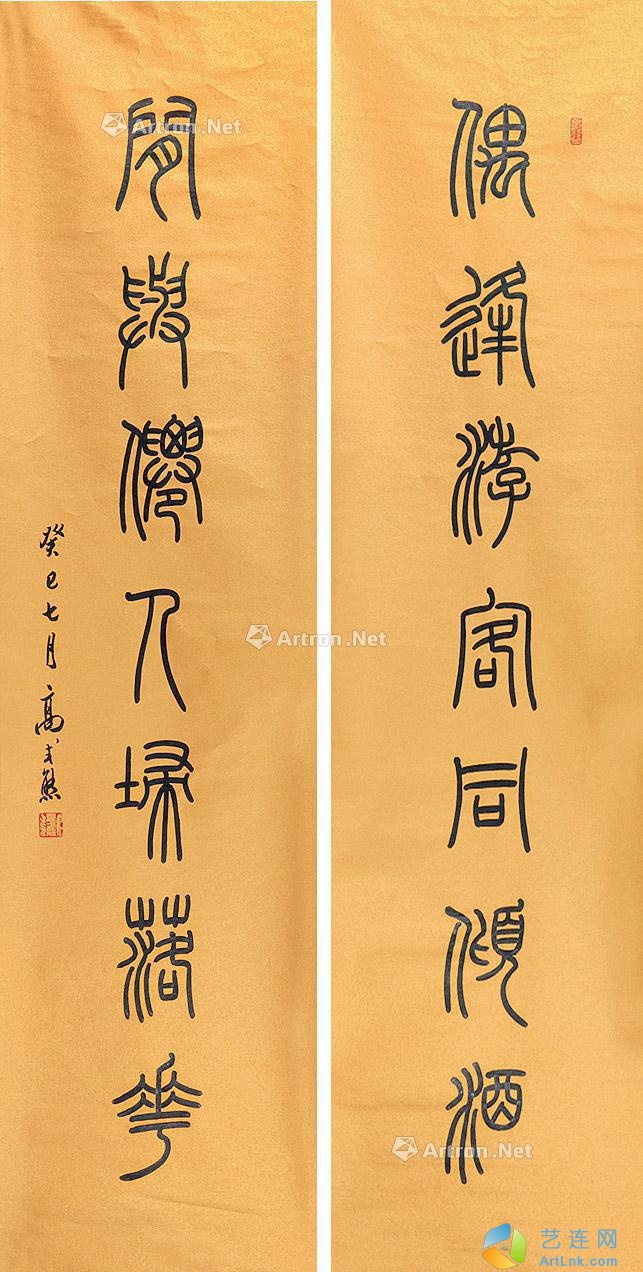 偶逢游客同倾酒
閒與僊人埽落花
癸巳七月 高式熊
Artron.Net
Artron.Net
Artron.Net
艺连网
ArtLnk.com